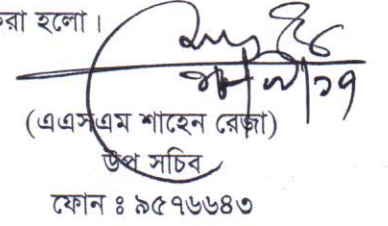 রা হলো।
(এএসএম শাহেন রেজা)
উপ সচিব
ফোন ঃ ৯৫৭৬৬৪৩